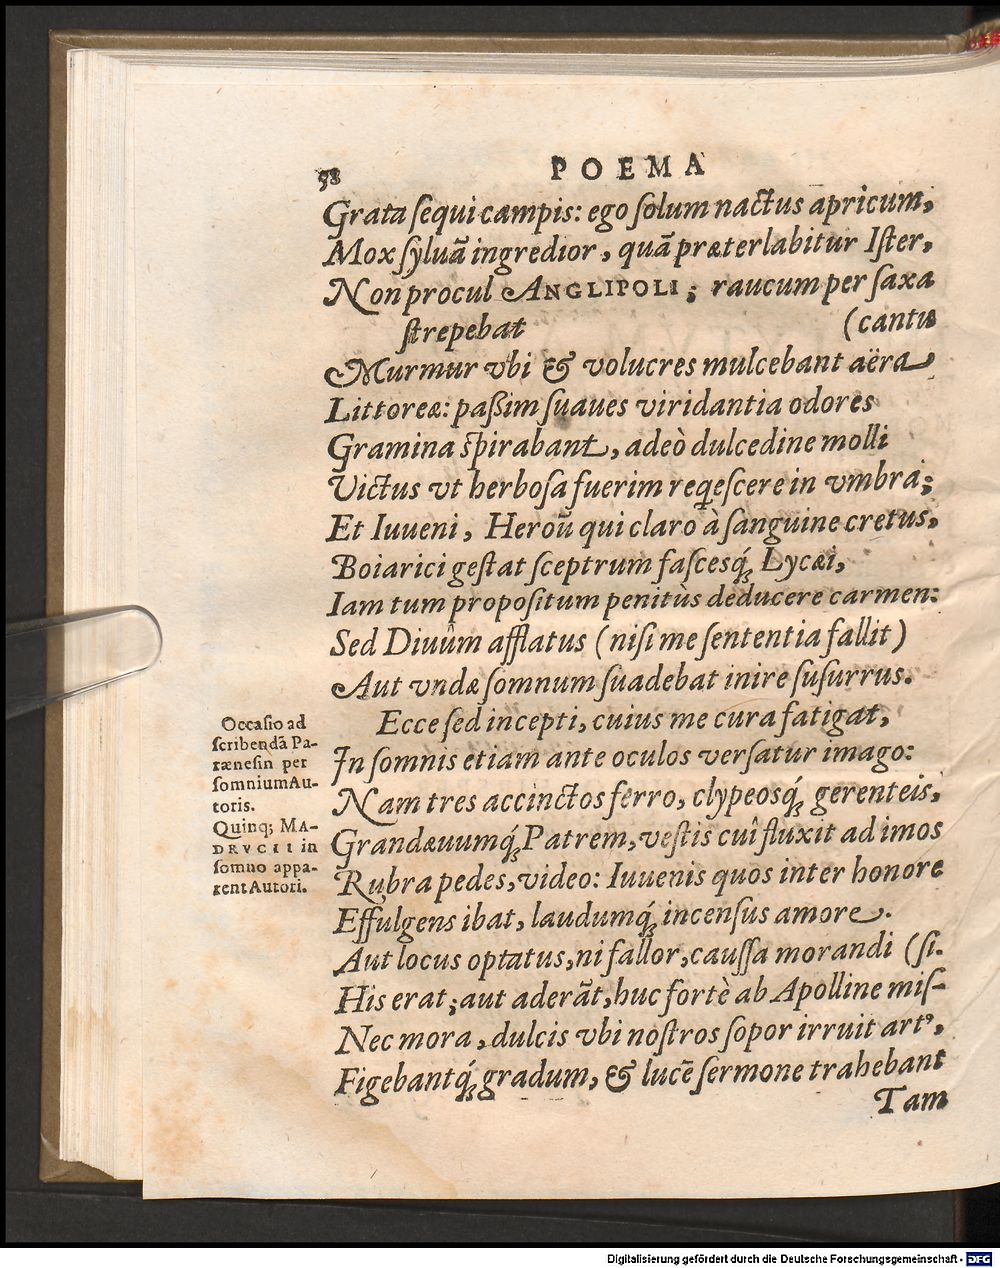 58 POEMA
Grata sequi campis: ego solum nactus apricum,
Mox syluã ingredior, quã præterlabitur Ister,
Non procul ANGLIPOLI; raucum per saxa
strepebat (cantu
Murmur vbi & volucres mulcebant aëra
Littoreæ: paßim suaues viridantia odores
Gramina spirabant, adeò dulcedine molli
Victus vt herbosa fuerim reqescere in vmbra;
Et Iuueni, Heroũ qui claro à sanguine cretus,
Boiarici gestat sceptrum fascesq́; Lycæi,
Iam tum propositum penitùs deducere carmen:
Sed Diuûm afflatus (nisi me sententia fallit)
Aut vndæ somnum suadebat inire susurrus.
Ecce sed incepti, cuius me cura fatigat,
In somnis etiam ante oculos versatur imago:
Nam tres accinctos ferro, clypeosq́; gerenteis,
Grandæuumq́; Patrem, vestis cuî fluxit ad imos
Rubra pedes, video: Iuuenis quos inter honore
Effulgens ibat, laudumq́; incensus amore.
Aut locus optatus, ni fallor, caussa morandi (si.
His erat; aut aderãt, huc fortè ab Apolline mis-
Nec mora, dulcis vbi nostros sopor irruit art⁹,
Figebantq́; gradum, & lucẽ sermone trahebant
Tam
Occasio ad
scribendã Pa-
rænesin per
somnium Au-
toris.
Quinq; MA-
DRVCII in
somno appa-
rent Autori.
Digitalisierung gefördert durch die Deutsche Forschungsgemeinschaft - DFG